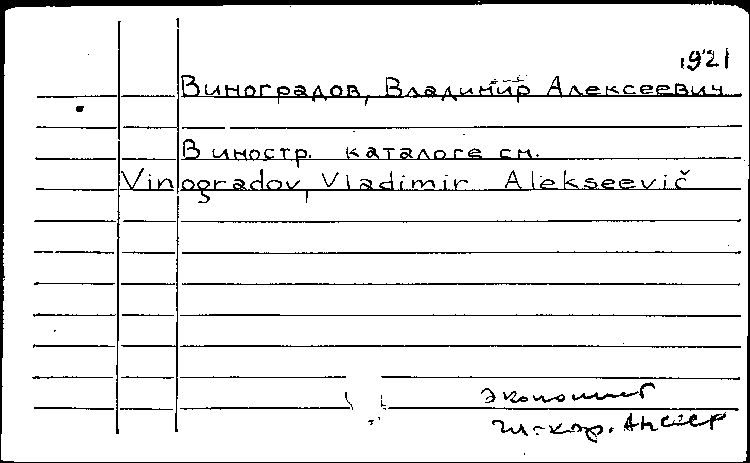 1921
Виноградов, Владимир Алексеевич
В иностр. каталоге см.
Vinogradov, Vladimir Alekseevič
экономист
чл.-кор. АН СССР